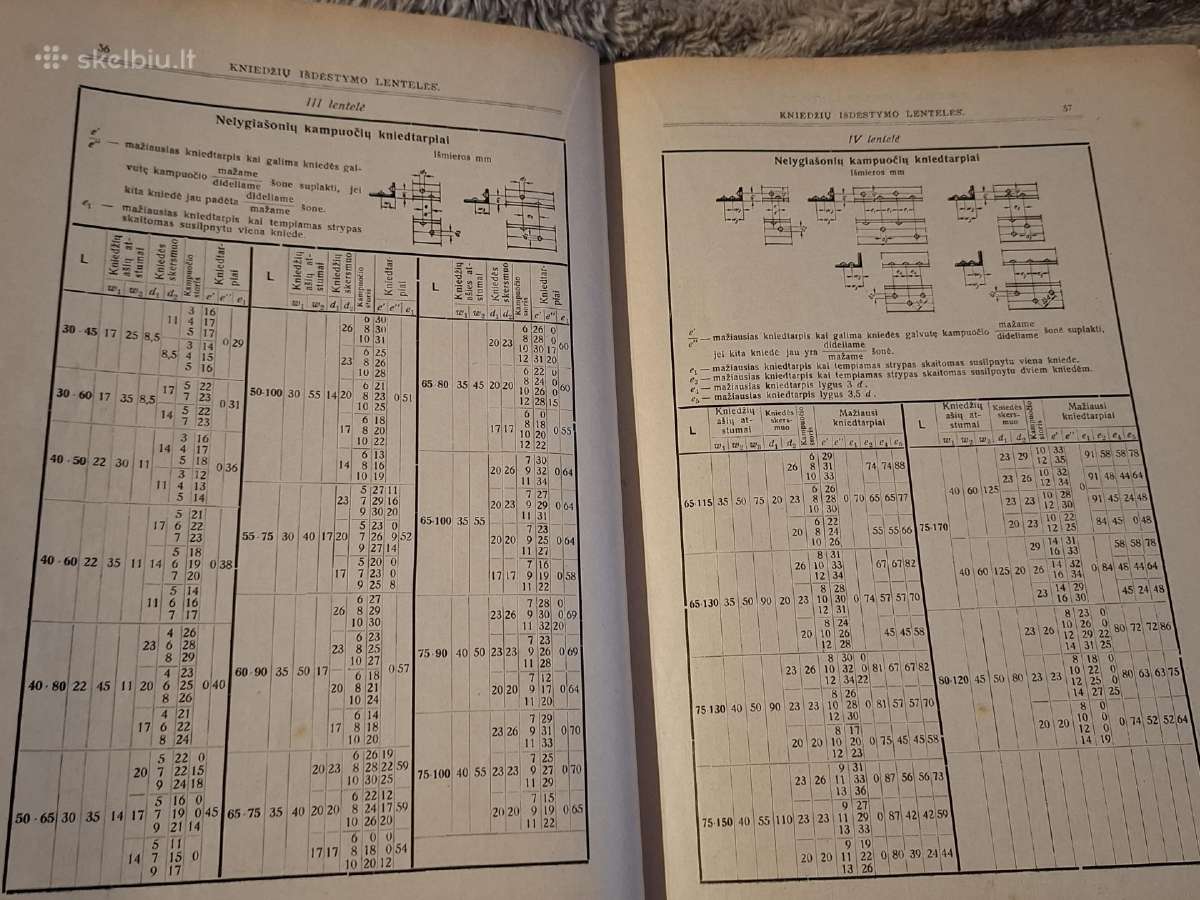 skelbiu.lt
36
KNIEDŽIŲ IŠDĖSTYMO LENTELĖS.
III lentelė
Nelygiašonių kampuočių kniedtarpiai
Išmieros mm
e′/e″ — mažiausias kniedtarpis kai galima kniedės gal-
vutę kampuočio mažame/dideliame šone suplakti, jei
kita kniedė jau padėta dideliame/mažame šone.
e₁ — mažiausias kniedtarpis kai tempiamas strypas
skaitomas susilpnytu viena kniede.
L
Kniedžių ašių at-stumai
Kniedės skersmuo
Kampuočio storis
Kniedtar-piai
w₁ w₂ d₁ d₂ e′ e″ e₁
30·45 17 25 8,5
11 3 16
4 17
5 17
0 29
8,5 3 14
4 15
5 16
30·60 17 35 8,5
17 5 22
7 23
0 31
14 5 22
7 23
40·50 22 30 11
14 3 16
4 17
5 18
0 36
11 3 12
4 13
5 14
40·60 22 35 11
17 5 21
6 22
7 23
14 5 18
6 19
7 20
0 38
11 5 14
6 16
7 17
40·80 22 45 11
23 4 26
6 28
8 29
20 4 23
6 25
8 26
0 40
17 4 21
6 22
8 24
50·65 30 35 14
20 5 22 0
7 22 15
9 24 18
17 5 16 0
7 19 0
9 21 14
45
14 5 11
7 15 0
9 17
50·100 30 55 14
26 6 30
8 30
10 31
23 6 25
8 26
10 28
20 6 21
8 23
10 25
0 51
17 6 18
8 20
10 22
14 6 13
8 16
10 19
55·75 30 40 17
23 5 27 11
7 29 16
9 30 20
20 5 23 0
7 26 9
9 27 14
52
17 5 20 0
7 23 0
9 25 8
60·90 35 50 17
26 6 27
8 29
10 30
23 6 23
8 25
10 27
0 57
20 6 18
8 21
10 24
17 6 14
8 18
10 20
65·75 35 40
20 23 6 26 19
8 28 22
10 30 25
59
20 20 6 22 12
8 24 17
10 26 20
59
17 17 6 0 0
8 18 0
10 20 12
54
65·80 35 45
20 23 6 26 0
8 28 0
10 30 17
12 31 20
60
20 20 6 22 0
8 24 0
10 26 0
12 28 15
60
17 17 6 0
8 18
10 20
12 22
0 55
65·100 35 55
20 26 7 30
9 32
11 34
0 64
20 23 7 27
9 29
11 31
0 64
20 20 7 23
9 25
11 27
0 64
17 17 7 16
9 19
11 22
0 58
75·90 40 50
23 26 7 28 0
9 30 0
11 32 20
69
23 23 7 23
9 26
11 28
0 69
20 20 7 12
9 17
11 20
0 64
75·100 40 55
23 26 7 29
9 31
11 33
0 70
23 23 7 25
9 27
11 29
0 70
20 20 7 15
9 19
11 22
0 65
KNIEDŽIŲ IŠDĖSTYMO LENTELĖS.
37
IV lentelė
Nelygiašonių kampuočių kniedtarpiai
Išmieros mm
e′/e″ — mažiausias kniedtarpis kai galima kniedės galvutę kampuočio mažame/dideliame šonė suplakti,
jei kita kniedė jau yra dideliame/mažame šonė.
e₁ — mažiausias kniedtarpis kai tempiamas strypas skaitomas susilpnytu viena kniede.
e₂ — mažiausias kniedtarpis kai tempiamas strypas skaitomas susilpnytu dviem kniedėm.
— mažiausias kniedtarpis lygus 3 d.
e₅ — mažiausias kniedtarpis lygus 3,5 d.
L
Kniedžių ašių at-stumai
Kniedės skers-muo
Kampuočio storis
Mažiausi kniedtarpiai
w₁ w₂ w₃ d₁ d₂ e′ e″ e₁ e₂ e₄ e₅
65·115 35 50 75 20
26 6 29
8 31
10 33
74 74 88
23 6 26
8 28
10 30
0 70 65 65 77
20 6 22
8 24
10 26
55 55 66
65·130 35 50 90 20
26 8 31
10 33
12 34
67 67 82
23 8 28
10 30
12 31
0 74 57 57 70
20 8 24
10 26
12 28
45 45 58
75·130 40 50 90
23 26 8 30 0
10 32 0
12 34 22
81 67 67 82
23 23 8 26
10 28
12 30
0 81 57 57 70
20 20 8 17
10 20
12 23
0 75 45 45 58
75·150 40 55 110
23 26 9 31
11 33
13 36
0 87 56 56 73
23 23 9 27
11 29
13 33
0 87 42 42 59
20 20 9 19
11 22
13 26
0 80 39 24 44
75·170
40 60 125
23 29 10 33
12 35
91 58 58 78
23 26 10 32
12 34
0
91 48 44 64
23 23 10 28
12 30
91 45 24 48
20 23 10 22
12 25
84 45 0 48
40 60 125 20
29 14 31
16 33
58 58 78
26 14 32
16 34
0 84 48 44 64
23 14 29
16 30
45 24 48
80·120 45 50 80
23 26 8 23 0
10 26 0
12 29 22
14 31 25
80 72 72 86
23 23 8 18 0
10 22 0
12 25 0
14 27 25
80 63 63 75
20 20 8 0
10 0
12 0
14 19
0 74 52 52 64